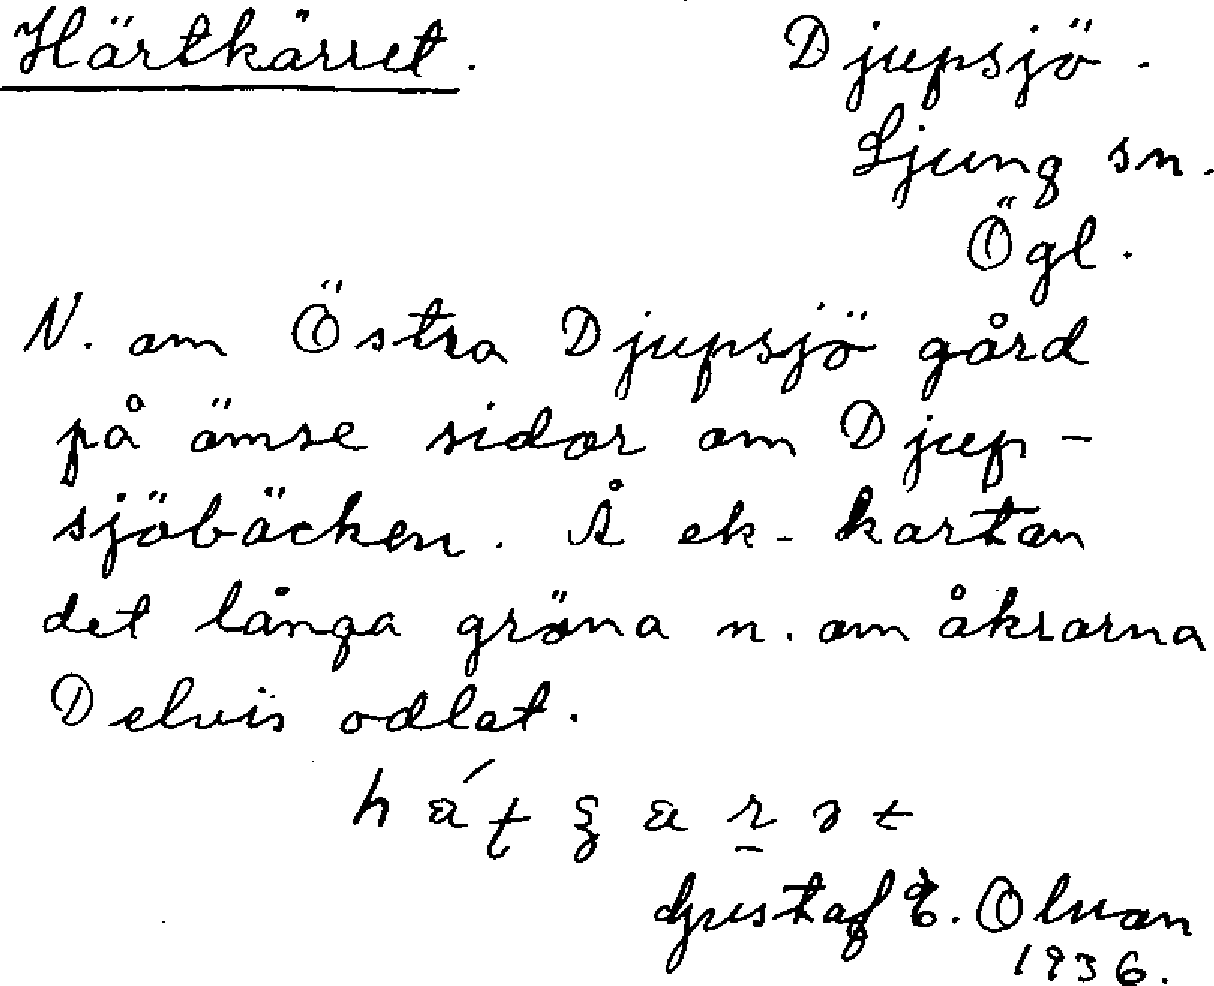 Härtkärret.
Djupsjö.
Ljung sn.
Ögl.
N. om Östra Djupsjö gård
på ömse sidor om Djup-
sjöbäcken. Å ek-kartan
det långa gröna n. om åkrarna
Delvis odlat.
Gustaf E. Olvan
1936.